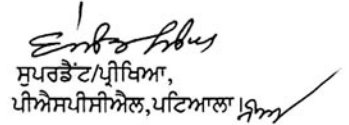 ਸੁਪਰਡੈਂਟ/ਪ੍ਰੀਖਿਆ,
ਪੀਐਸਪੀਸੀਐਲ,ਪਟਿਆਲਾ।